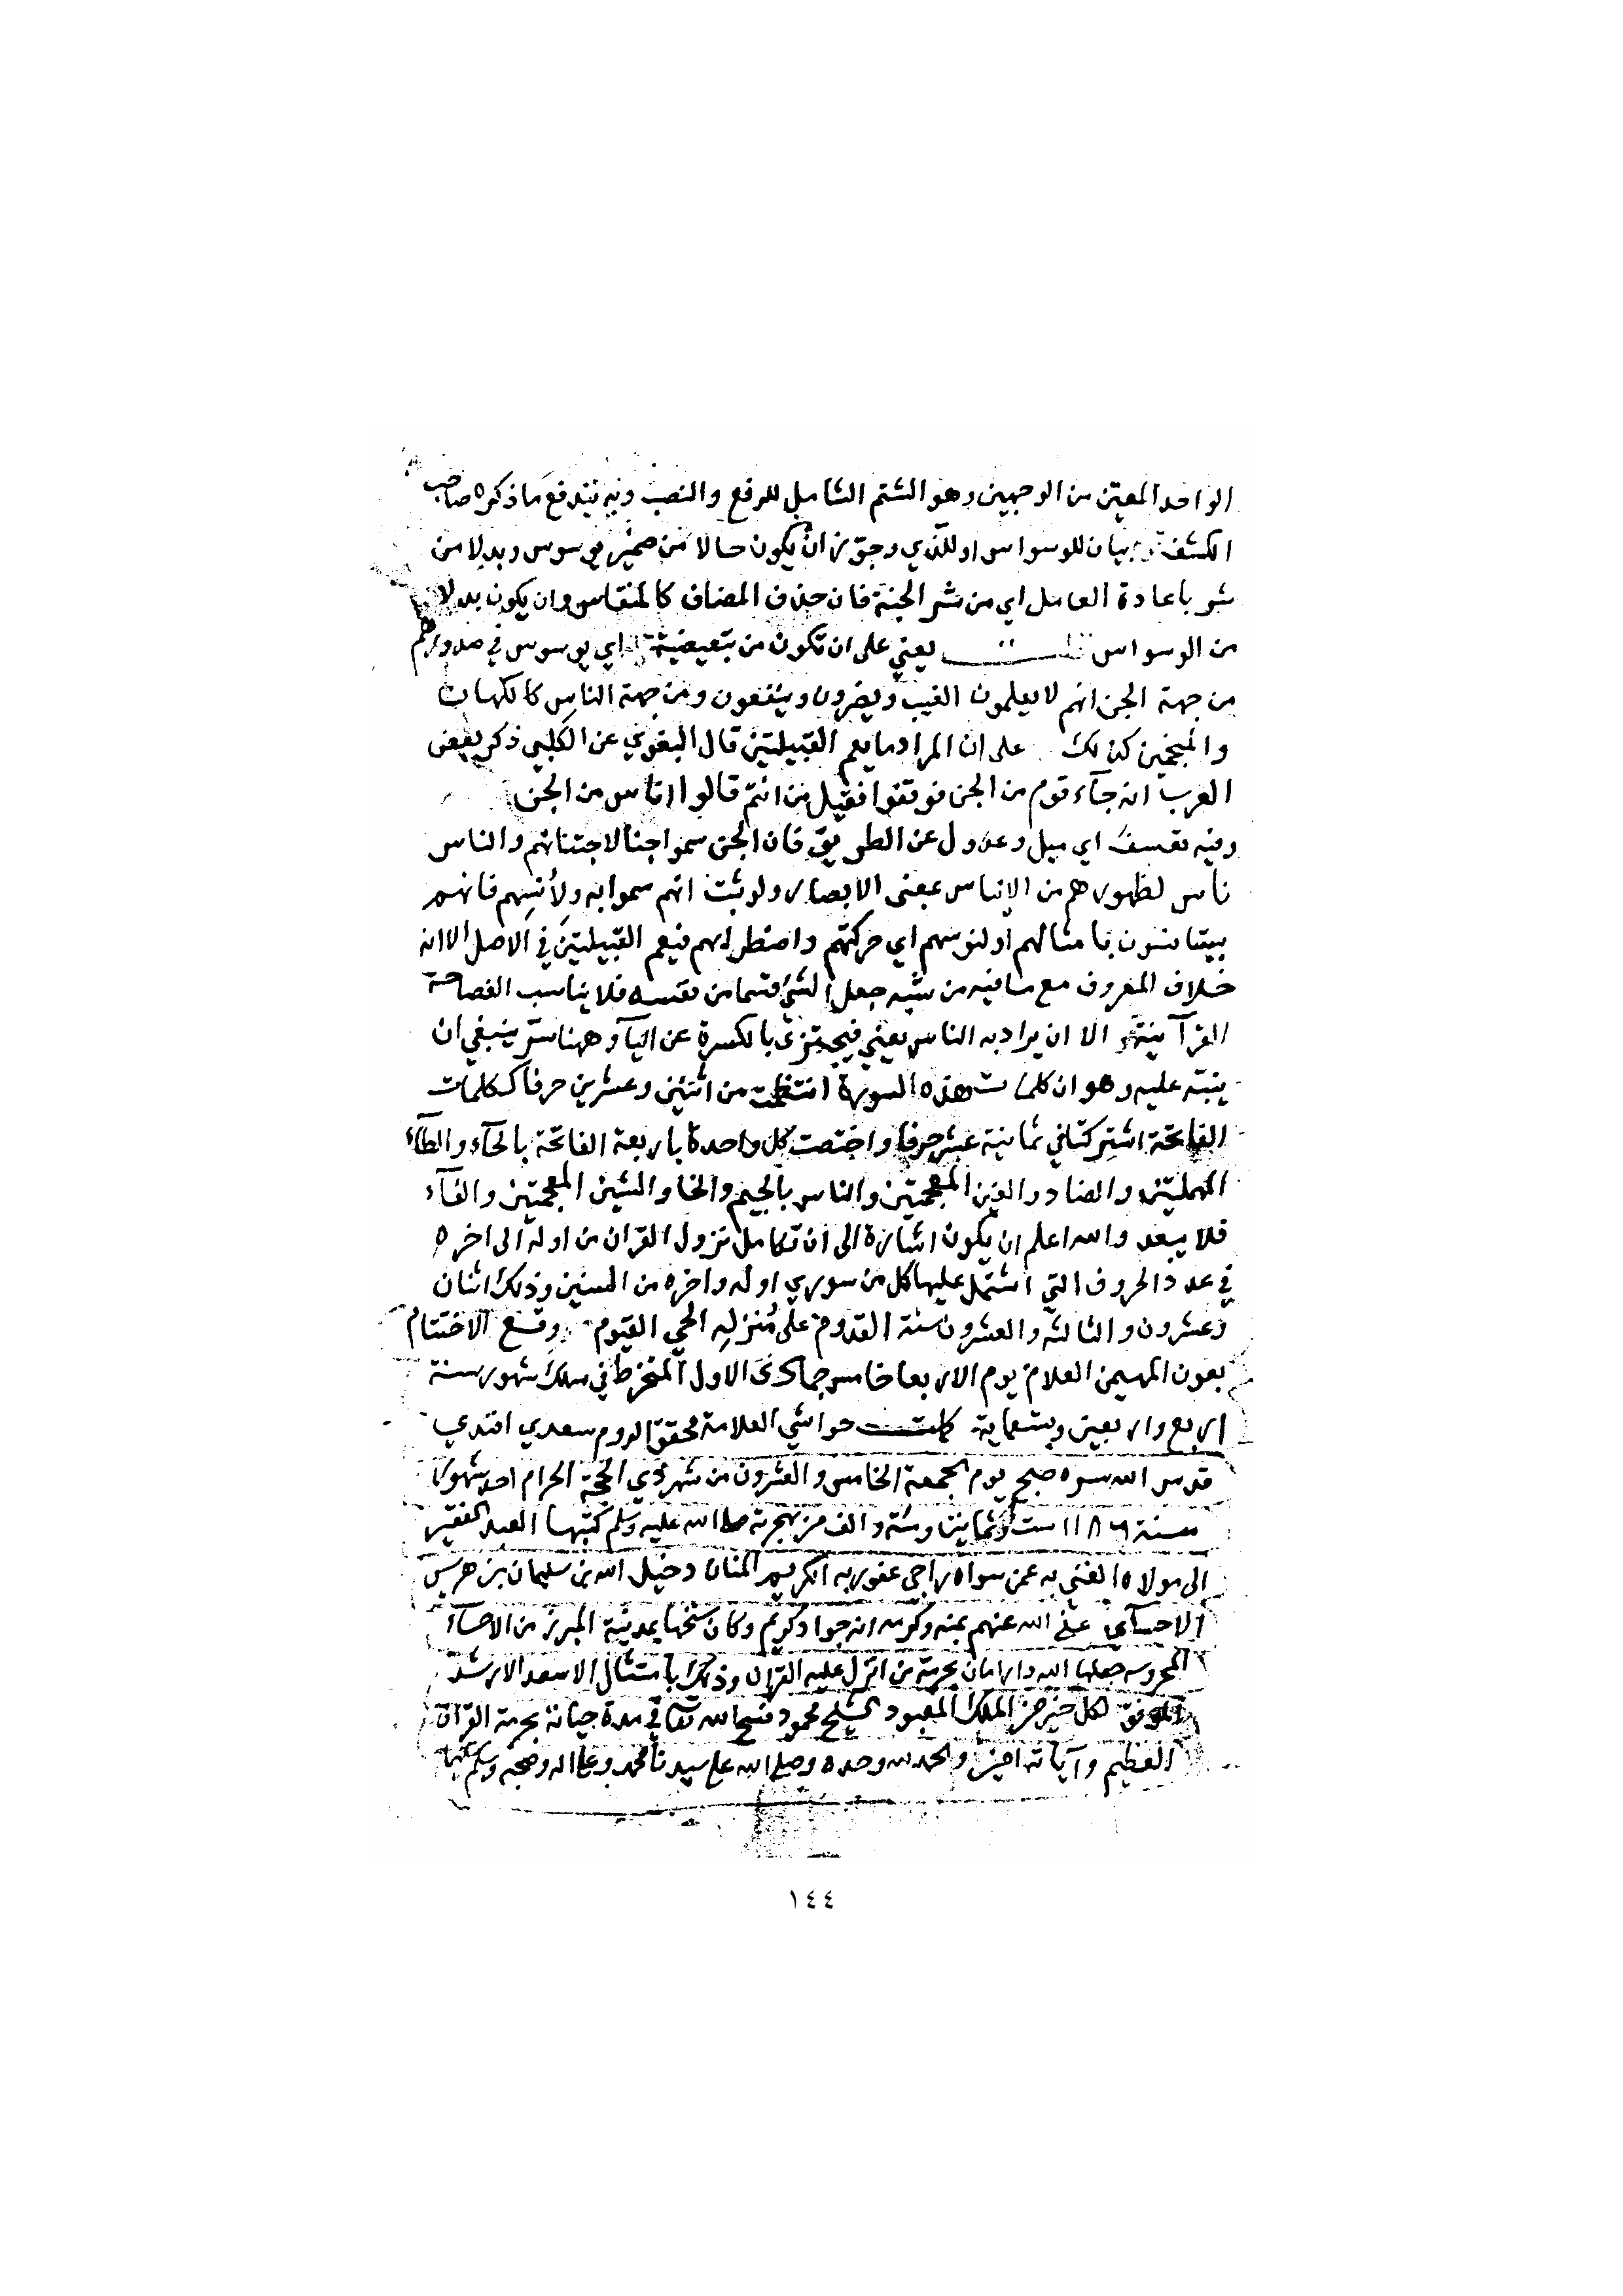 الواحد المعين من الوجهين وهو الشتم الشامل للرفع والنصب وبه يندفع ما ذكره صاحب
الكشف بيان للوسواس او للذي وجوز ان يكون حالا من ضمير يوسوس وبدلا من
شر باعادة العامل اي من شر الجنة فان حذف المضاف كالمنقاس وان يكون بدلا
من الوسواس يعني على ان تكون من تبعيضية اي يوسوس في صدورهم
من جهة الجن انهم لا يعلمون الغيب ويضرون وينفعون ومن جهة الناس كالكهان
والمنجمين كذلك على ان المراد ما يعم القبيلتين قال البغوي عن الكلبي ذكر بعض
العرب انه جآء قوم من الجن فوقفوا فقيل من انتم قالوا اناس من الجن
وفيه تعسف اي ميل وعدول عن الطريق فان الجن سموا جنا لاجتنانهم والناس
ناس لظهورهم من الايناس بمعنى الابصار ولو ثبت انهم سموا به ولأنسهم فانهم
يستانسون بامثالهم او لنوسهم اي حركتهم واضطرابهم فيعم القبيلتين في الاصل الا انه
خلاف المعروف مع ما فيه من شبه جعل الشئ قسما من نفسه فلا يناسب الفصاحة
القرآنية الا ان يراد به الناس يعني فيجتزئ بالكسرة عن اليآء وههنا سر ينبغي ان
ينبه عليه وهو ان كلمات هذه السورة انتظمت من اثنين وعشرين حرفا ككلمات
الفاتحة اشتركتا في ثمانية عشر حرفا واختصت كل واحدة باربعة الفاتحة بالحآء والطآء
المهملتين والضاد والغين المعجمتين والناس بالجيم والخا والشين المعجمتين والفآء
فلا يبعد والله اعلم ان يكون اشارة الى ان تكامل نزول القران من اوله الى اخره
في عدد الحروف التي اشتمل عليها كل من سورتي اوله واخره من السنين وذلك اثنان
وعشرون والثالثه والعشرون سنة القدوم على مُنزلِه الحي القيوم وقع الاختتام
بعون المهيمن العلام يوم الاربعا خامس جمادى الاول المنخرط في سلك شهور سنة
اربع واربعين وتسعماية كملت حواشي العلامة محقق الروم سعدي افندي
قدس الله سره صبح يوم الجمعة الخامس والعشرون من شهر ذي الحجة الحرام احد شهور
سنة ١١٨٦ ست وثمانين ومئة والف من هجرته صلا الله عليه وسلم كتبها العبد الفقير
الى مولاه الغني به عمن سواه راجى عفو ربه الكريم المنان دخيل الله بن سليمان بن هريس
الاحسآي عفى الله عنهم بمنه وكرمه انه جواد كريم وكان نسخها بمدينة المبرز من الاحسآا
المحروسه جعلها الله دار امان بحرمة من انزل عليه القران وذلك بامتثال الاسعد الارشد
الموفق لكل خير من الملك المعبود الشيخ محمود فسح الله تعا في مدة حياته بحرمة القرآن
العظيم وآياته امين والحمد لله وحده وصلى الله على سيدنا محمد وعلى اله وصحبه وسلم
١٤٤